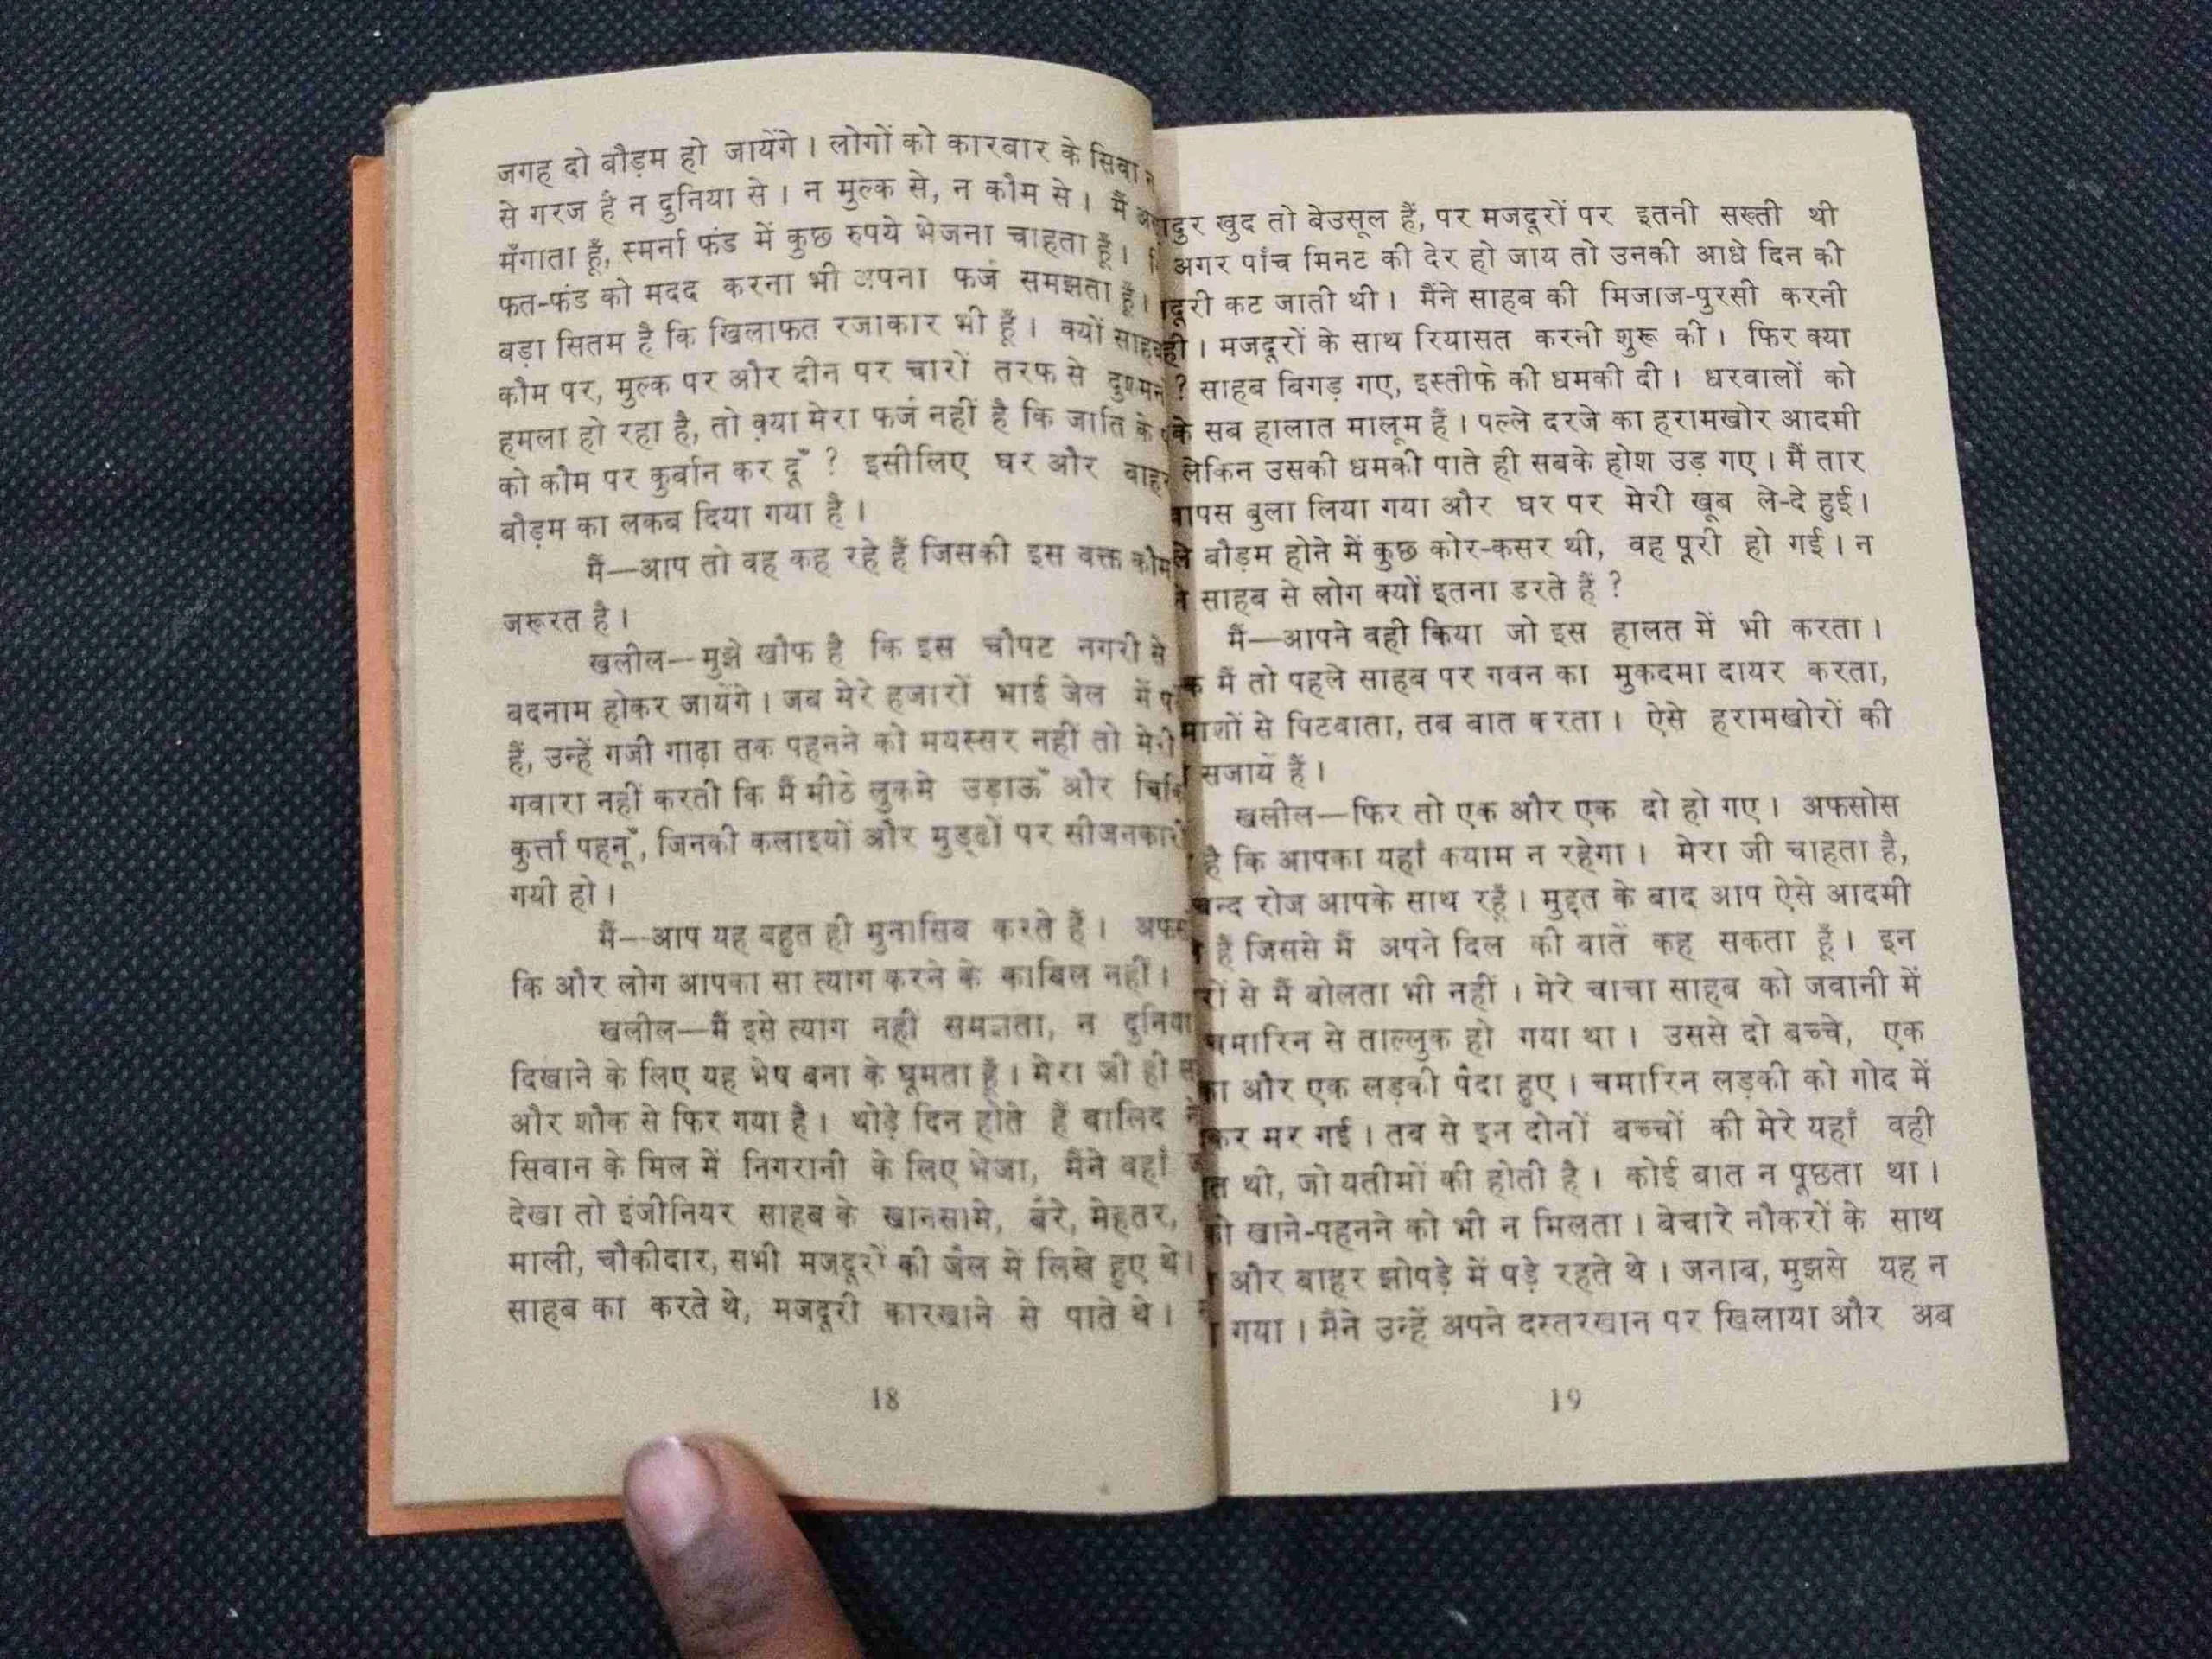 जगह दो बौड़म हो जायेंगे । लोगों को कारबार के सिवा न
से गरज है न दुनिया से । न मुल्क से, न कौम से । मैं
मँगाता हूँ, स्मर्ना फंड में कुछ रुपये भेजना चाहता हूँ ।
फत-फंड को मदद करना भी अपना फर्ज समझता हूँ ।
बड़ा सितम है कि खिलाफत रजाकार भी हूँ । क्यों साहब
कौम पर, मुल्क पर और दीन पर चारों तरफ से
हमला हो रहा है, तो क्या मेरा फर्ज नहीं है कि जाति के
को कौम पर कुर्बान कर दूँ ? इसीलिए घर और बाहर
बौड़म का लकब दिया गया है ।
मैं—आप तो वह कह रहे हैं जिसकी इस वक्त कौम
जरूरत है ।
खलील—मुझे खौफ है कि इस चौपट नगरी से
बदनाम होकर जायेंगे । जब मेरे हजारों भाई जेल में
हैं, उन्हें गजी गाढ़ा तक पहनने को मयस्सर नहीं तो मेरी
गवारा नहीं करती कि मैं मीठे लुकमे उड़ाऊँ और
कुर्त्ता पहनूँ, जिनकी कलाइयों और मुड्ढों पर सीजनकारी
गयी हो ।
मैं—आप यह बहुत ही मुनासिब करते हैं ।
कि और लोग आपका सा त्याग करने के काबिल नहीं ।
खलील—मैं इसे त्याग नहीं समझता, न दुनिया
दिखाने के लिए यह भेष बना के घूमता हूँ । मेरा जी ही
और शौक से फिर गया है । थोड़े दिन होते हैं वालिद ने
सिवान के मिल में निगरानी के लिए भेजा, मैंने वहाँ
देखा तो इंजीनियर साहब के खानसामे, बैरे, मेहतर,
माली, चौकीदार, सभी मजदूरों की जैल में लिखे हुए थे ।
साहब का करते थे, मजदूरी कारखाने से पाते थे ।
18
खुद तो बेउसूल हैं, पर मजदूरों पर इतनी सख्ती थी
अगर पाँच मिनट की देर हो जाय तो उनकी आधे दिन की
कट जाती थी । मैंने साहब की मिजाज-पुरसी करनी
। मजदूरों के साथ रियासत करनी शुरू की । फिर क्या
? साहब बिगड़ गए, इस्तीफे की धमकी दी । धरवालों को
के सब हालात मालूम हैं । पल्ले दरजे का हरामखोर आदमी
लेकिन उसकी धमकी पाते ही सबके होश उड़ गए । मैं तार
वापस बुला लिया गया और घर पर मेरी खूब ले-दे हुई ।
बौड़म होने में कुछ कोर-कसर थी, वह पूरी हो गई । न
साहब से लोग क्यों इतना डरते हैं ?
मैं—आपने वही किया जो इस हालत में भी करता ।
मैं तो पहले साहब पर गवन का मुकदमा दायर करता,
से पिटवाता, तब बात करता । ऐसे हरामखोरों की
सजायें हैं ।
खलील—फिर तो एक और एक दो हो गए । अफसोस
है कि आपका यहाँ कयाम न रहेगा । मेरा जी चाहता है,
चन्द रोज आपके साथ रहूँ । मुद्दत के बाद आप ऐसे आदमी
हैं जिससे मैं अपने दिल की बातें कह सकता हूँ । इन
से मैं बोलता भी नहीं । मेरे चाचा साहब को जवानी में
चमारिन से ताल्लुक हो गया था । उससे दो बच्चे, एक
और एक लड़की पैदा हुए । चमारिन लड़की को गोद में
मर गई । तब से इन दोनों बच्चों की मेरे यहाँ वही
थी, जो यतीमों की होती है । कोई बात न पूछता था ।
खाने-पहनने को भी न मिलता । बेचारे नौकरों के साथ
और बाहर झोपड़े में पड़े रहते थे । जनाब, मुझसे यह न
गया । मैंने उन्हें अपने दस्तरखान पर खिलाया और अब
19